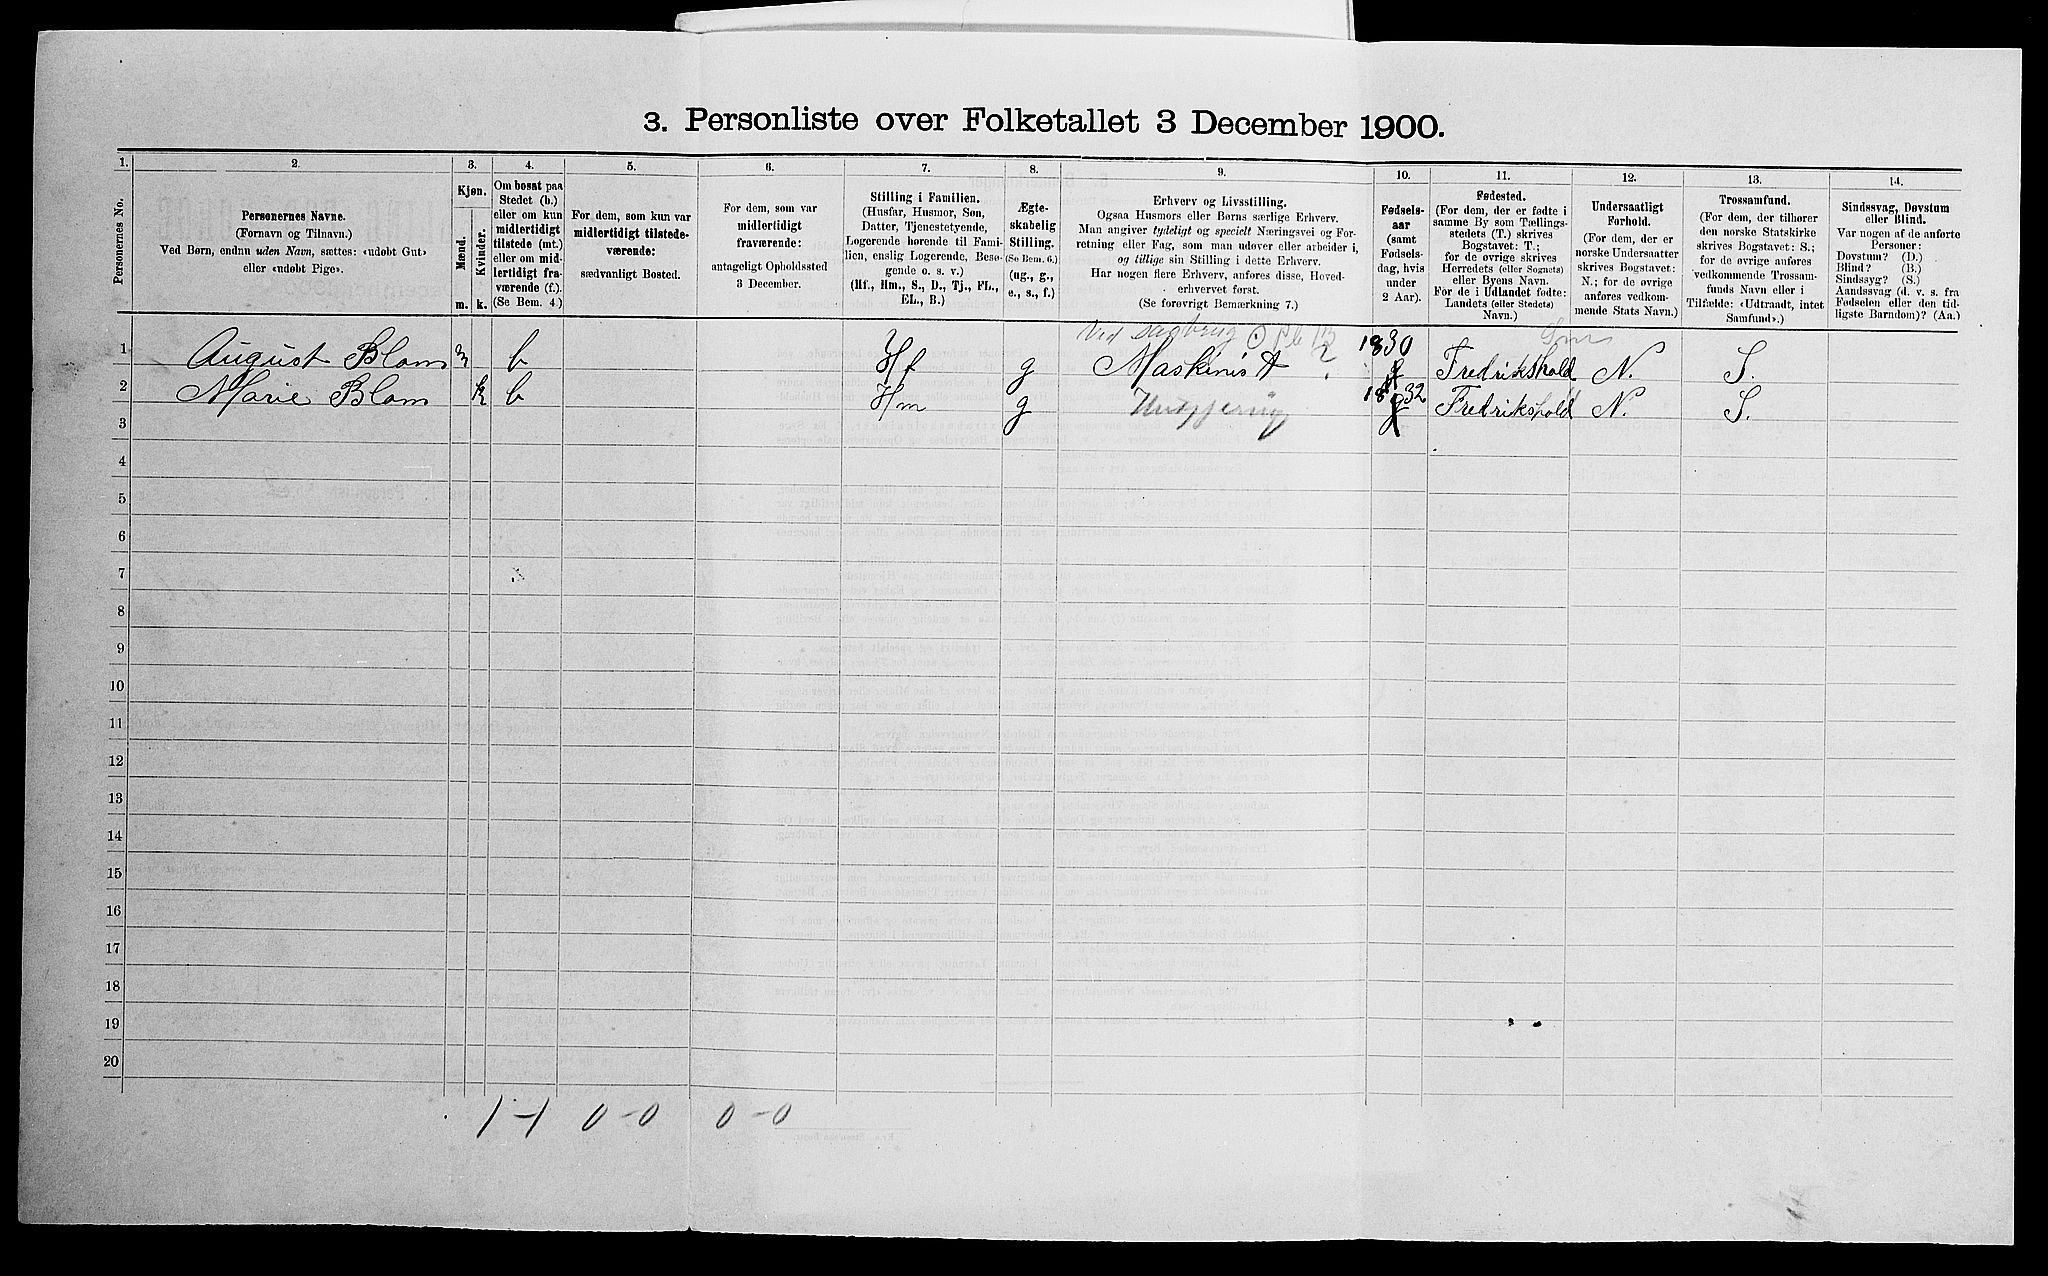 3. Personliste over Folketallet 3 December 1900.
1. 2. 3. 4. 5. 6. 7. 8. 9. 10. 11. 12. 13. 14.
Personernes No.
Personernes Navne.
(Fornavn og Tilnavn.)
Ved Børn, endnu uden Navn, sættes: «udøbt Gut»
eller «udøbt Pige».
Kjøn.
Mænd.
Kvinder.
m. k.
Om bosat paa
Stedet (b.)
eller om kun
midlertidigt
tilstede (mt.)
eller om mid-
lertidigt fra-
værende (f.).
(Se Bem. 4.)
For dem, som kun var
midlertidigt tilstede-
værende:
sædvanligt Bosted.
For dem, som var
midlertidigt
fraværende:
antageligt Opholdssted
3 December.
Stilling i Familien.
(Husfar, Husmor, Søn,
Datter, Tjenestetyende,
Logerende hørende til Fami-
lien, enslig Logerende, Besø-
gende o. s. v.)
(Hf., Hm., S., D., Tj., FL.,
EL., B.)
Ægte-
skabelig
Stilling.
(Se Bem. 6.)
(ug., g.,
e., s., f.)
Erhverv og Livsstilling.
Ogsaa Husmors eller Børns særlige Erhverv.
Man angiver tydeligt og specielt Næringsvei og For-
retning eller Fag, som man udøver eller arbeider i,
og tillige sin Stilling i dette Erhverv.
Har nogen flere Erhverv, anføres disse, Hoved-
erhvervet først.
(Se forøvrigt Bemærkning 7.)
Fødsels-
aar
(samt
Fødsels-
dag, hvis
under
2 Aar).
Fødested.
(For dem, der er fødte i
samme By som Tællings-
stedets (T.) skrives
Bogstavet: T.;
for de øvrige skrives
Herredets (eller Sognets)
eller Byens Navn.
For de i Udlandet fødte:
Landets (eller Stedets)
Navn.)
Undersaatligt
Forhold.
(For dem, der er
norske Undersaatter
skrives Bogstavet:
N.; for de øvrige
anføres vedkom-
mende Stats Navn.)
Trossamfund.
(For dem, der tilhører
den norske Statskirke
skrives Bogstavet: S.;
for de øvrige anføres
vedkommende Trossam-
funds Navn eller i
Tilfælde: «Udtraadt, intet
Samfund».)
Sindssvag, Døvstum
eller Blind.
Var nogen af de anførte
Personer:
Døvstum? (D.)
Blind? (B.)
Sindssyg? (S.)
Aandssvag (d. v. s. fra
Fødselen eller den tid-
ligste Barndom)? (Aa.)
Ved Dagbrug
1 August Blom m b Hf g Maskinist ? 1830 Fredrikshald N. S.
2 Marie Blom k b Hm g 1832 Fredrikshald N. S.
3
4
5
6
7
8
9
10
11
12
13
14
15
16
17
18
19
20
1-1 0-0 0-0